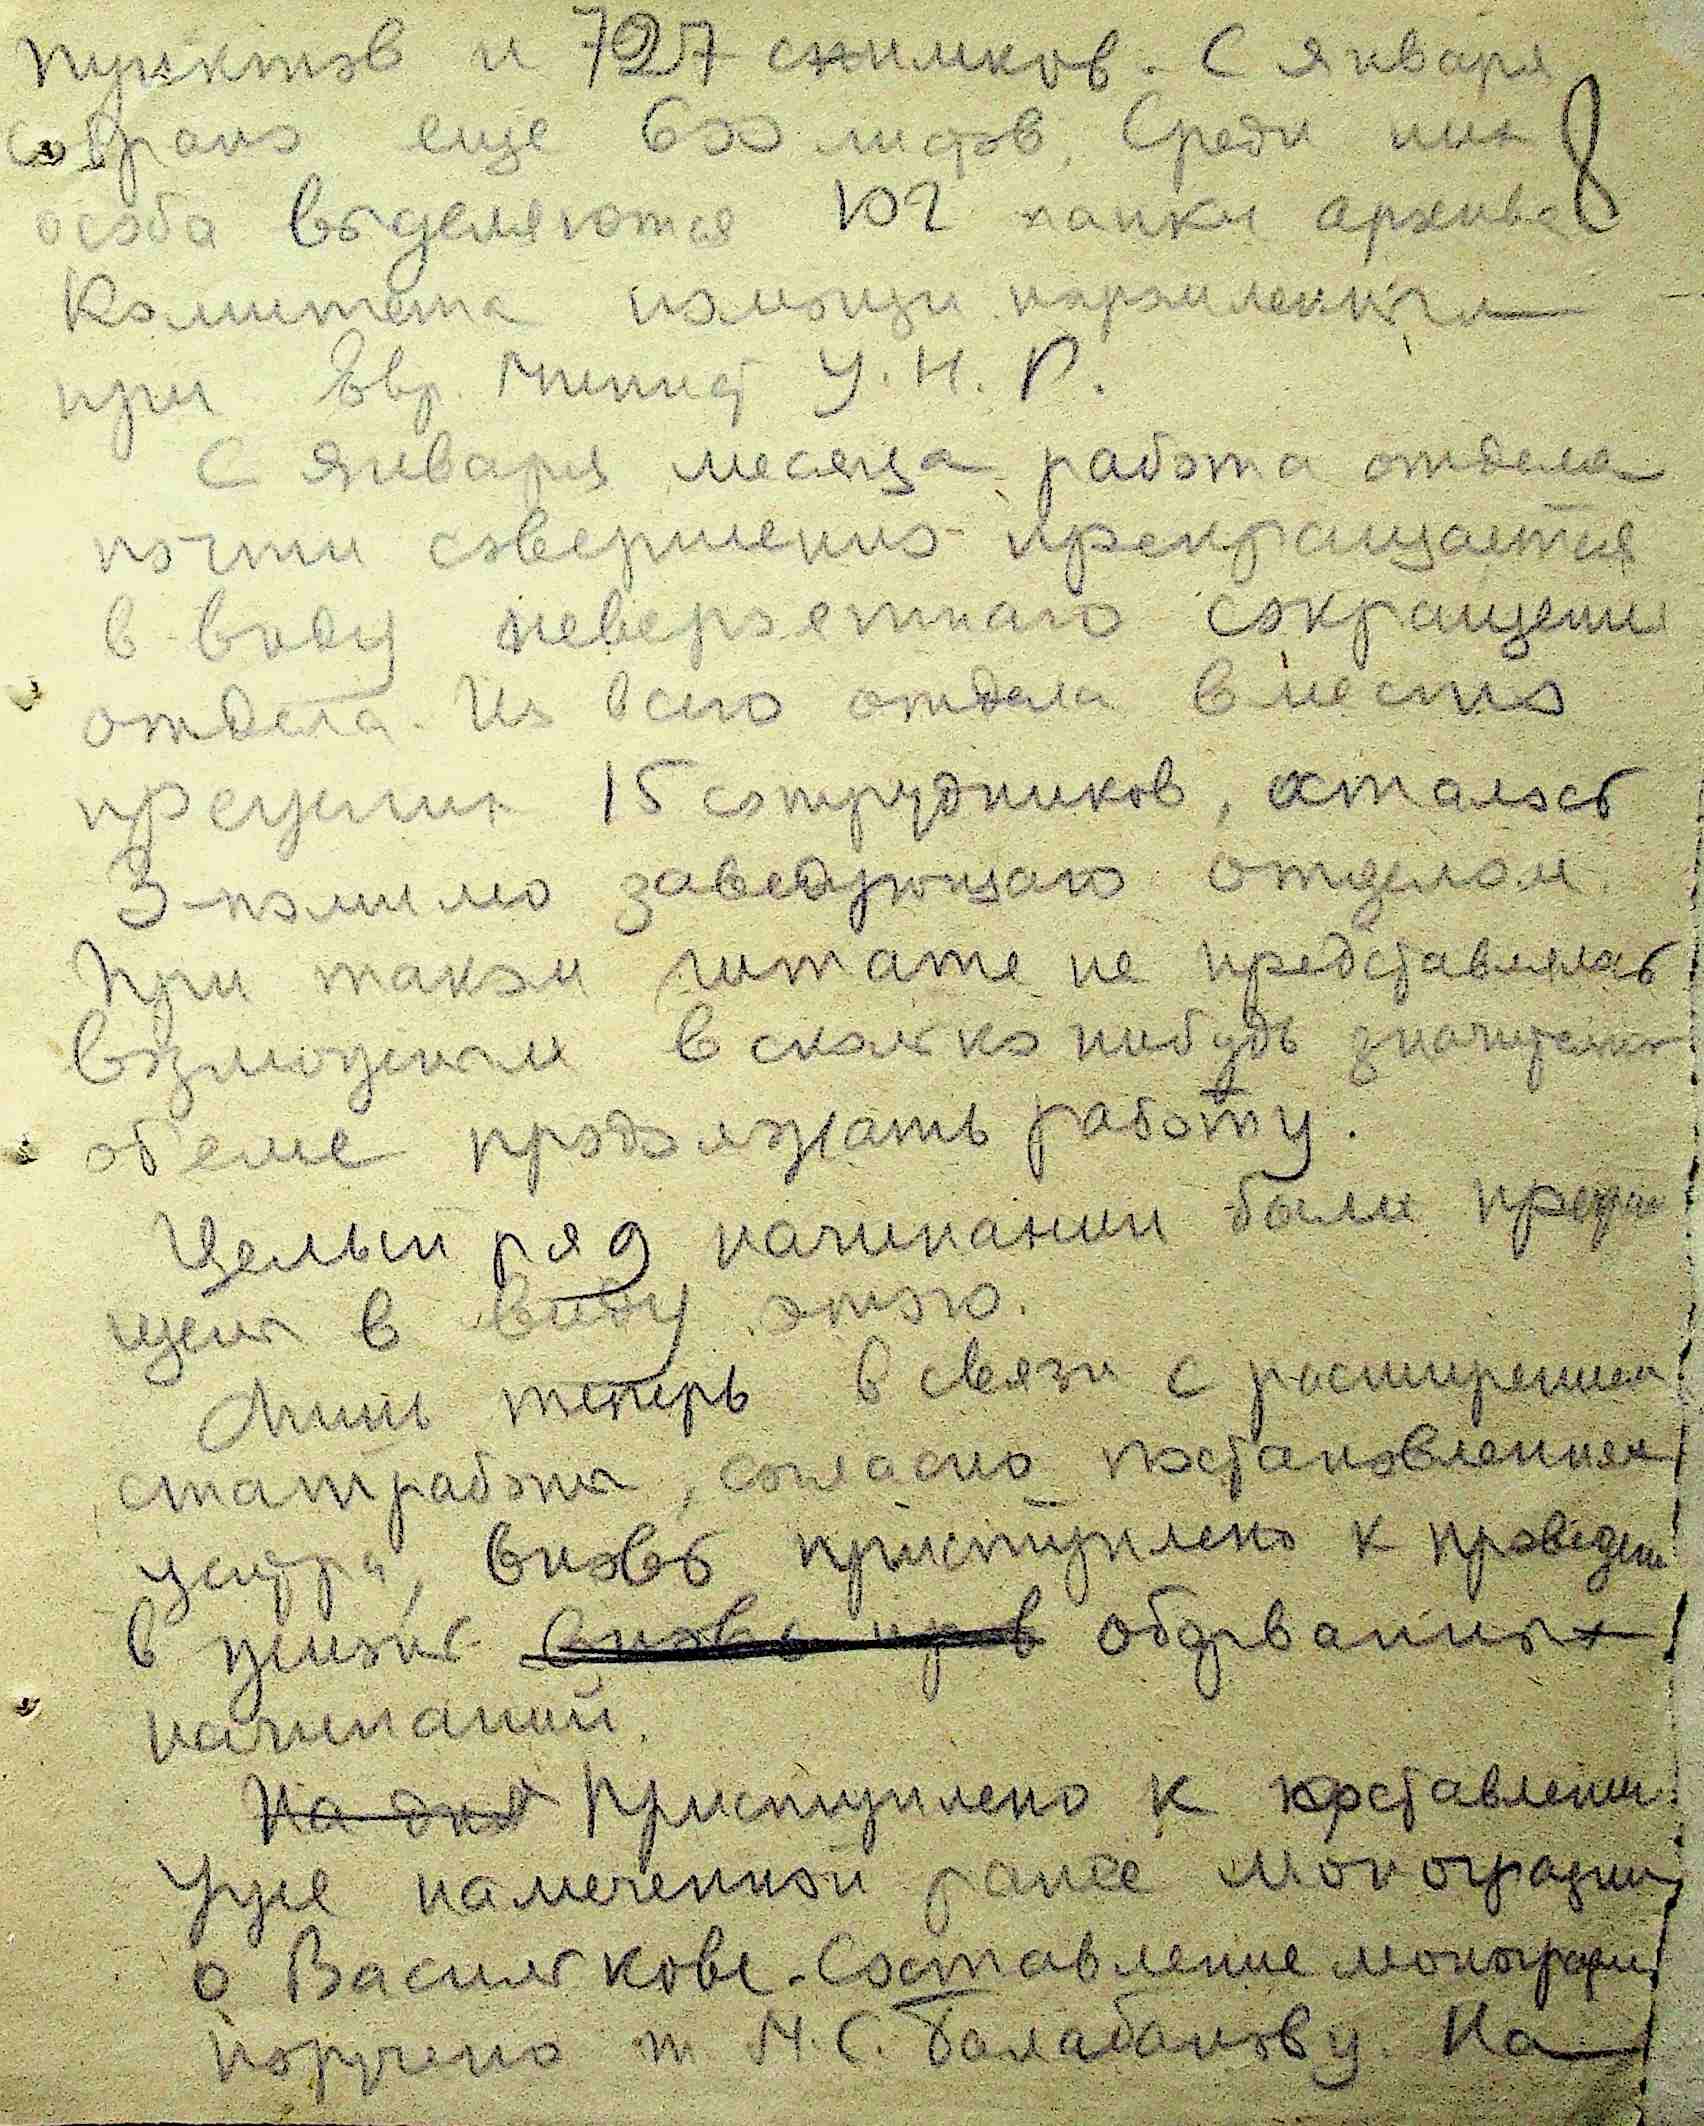 пунктов и 727 снимков. С января
собрано еще 600 листов, Среди них
особо выделяются 102 папки архива
Комитета помощи погромленным
при Евр. Минист У.Н.Р.
С января месяца работа отдела
почти совершенно прекращается
в виду невероятнаго сокращения
отдела. Из всего отдела вместо
прежних 15 сотрудников, осталось
3 помимо заведующаго отделом.
При таком штате не представлялось
возможным в сколько нибудь значительн
об'еме продолжать работу.
Целый ряд начинаний были прекра
щены в виду этого.
Лишь теперь в связи с расширением
статработы, согласно постановления
центра, вновь приступлено к проведен
в жизнь вновь пр в оборванных
начинаний.
На дня Приступлено к составлению
уже намеченной ранее монографии
о Василькове. Составление монографии
поручено т М.С. Балабанову. На
8